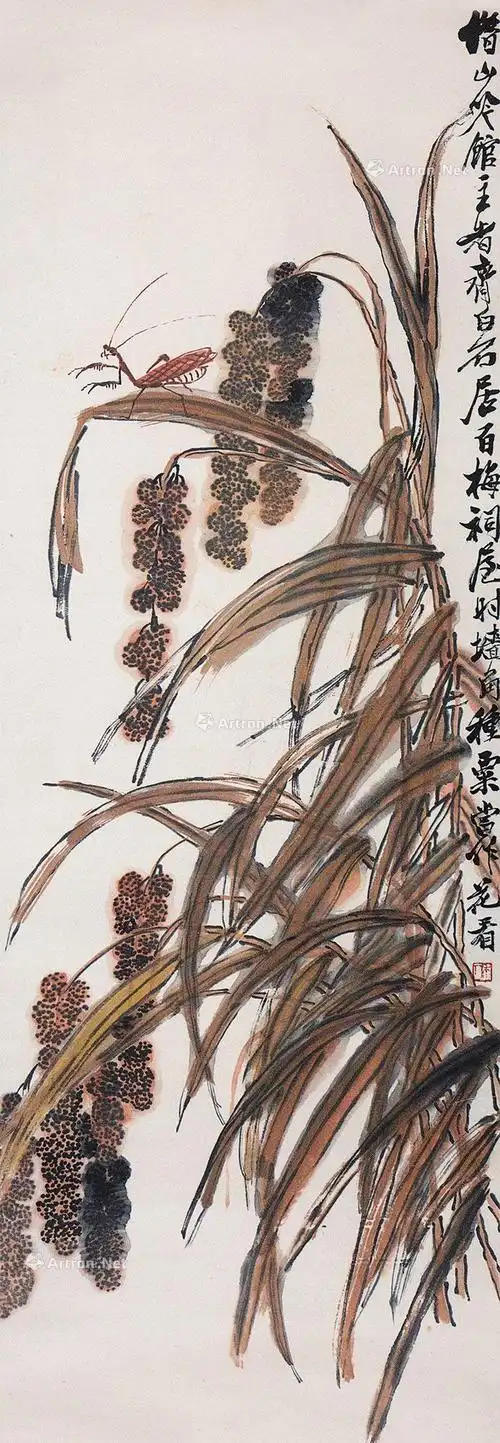 借山吟館主者齊白石居百梅祠屋时墙角種粟當作花看
Artron.Net
Artron.Net
Artron.Net